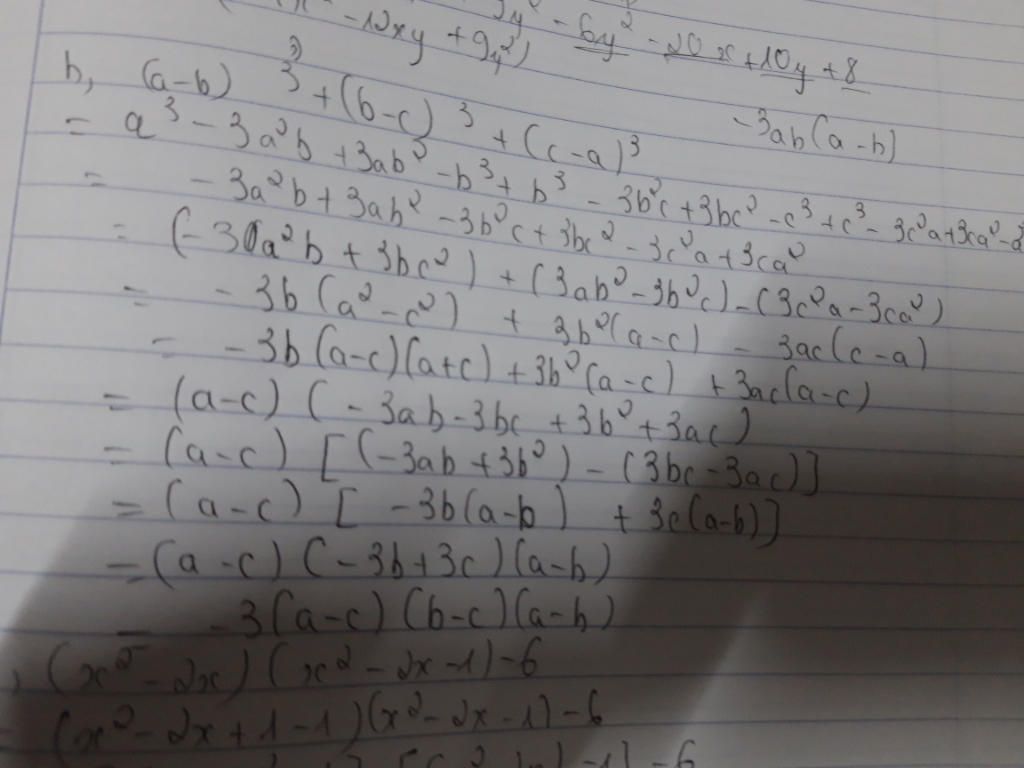 - 12xy + 9y²) - 6y² - 20x + 10y + 8
b, (a-b)³ + (b-c)³ + (c-a)³
-3ab(a-b)
= a³ - 3a²b + 3ab² - b³ + b³ - 3b²c + 3bc² - c³ + c³ - 3c²a + 3ca² - a³
= - 3a²b + 3ab² - 3b²c + 3bc² - 3c²a + 3ca²
= (-3a²b + 3bc²) + (3ab² - 3b²c) - (3c²a - 3ca²)
= - 3b (a² - c²) + 3b²(a-c) - 3ac(c-a)
= - 3b (a-c)(a+c) + 3b²(a-c) + 3ac(a-c)
= (a-c) (-3ab - 3bc + 3b² + 3ac)
= (a-c) [(-3ab + 3b²) - (3bc - 3ac)]
= (a-c) [-3b(a-b) + 3c(a-b)]
= (a-c) (-3b + 3c)(a-b)
= -3(a-c) (b-c)(a-b)
(x² - 2x) (x² - 2x - 1) - 6
= (x² - 2x + 1 - 1)(x² - 2x - 1) - 6
- 1] - 6